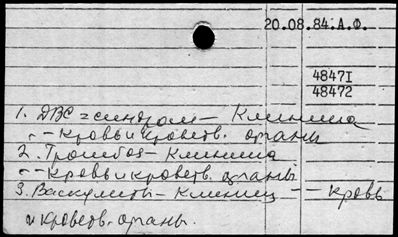 20.08.84.А.Ф.
48471
48472
1. ДВС-синдром - Клиника
-"- Кровь и кроветв. органы
2. Тромбоз - Клиника
-"- Кровь и кроветв. органы
3. Васкулиты - Клиника -"- Кровь
и кроветв. органы.